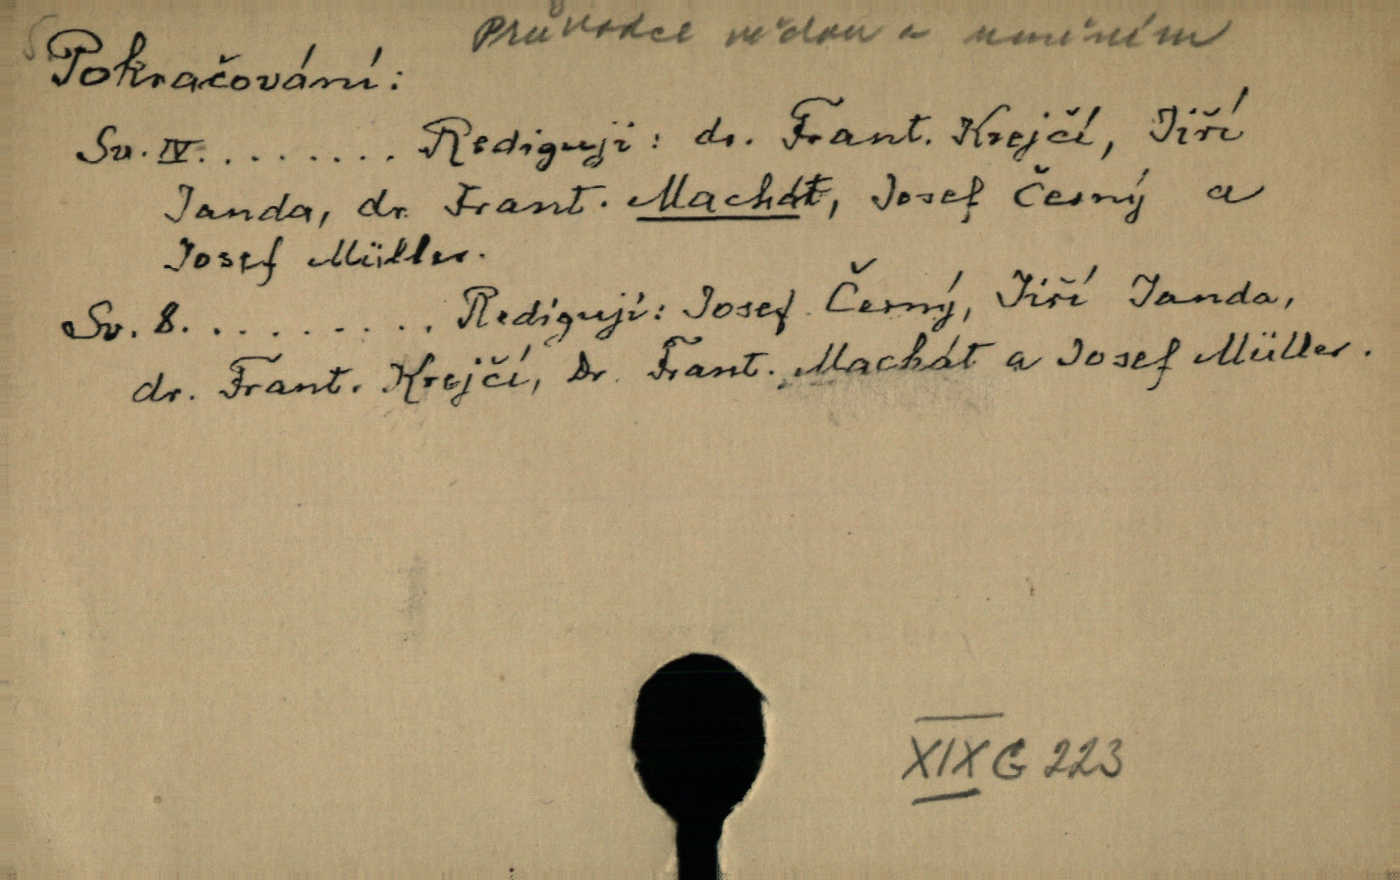 Průvodce vědou a uměním
Pokračování:
Sv. IV. . . . . . . . . Redigují: dr. Frant. Krejčí, Jiří
Janda, dr. Frant. Machát, Josef Černý a
Josef Müller.
Sv. 8. . . . . . . . . . Redigují: Josef Černý, Jiří Janda,
dr. Frant. Krejčí, Dr. Frant. Machát a Josef Müller.
XIX G 223